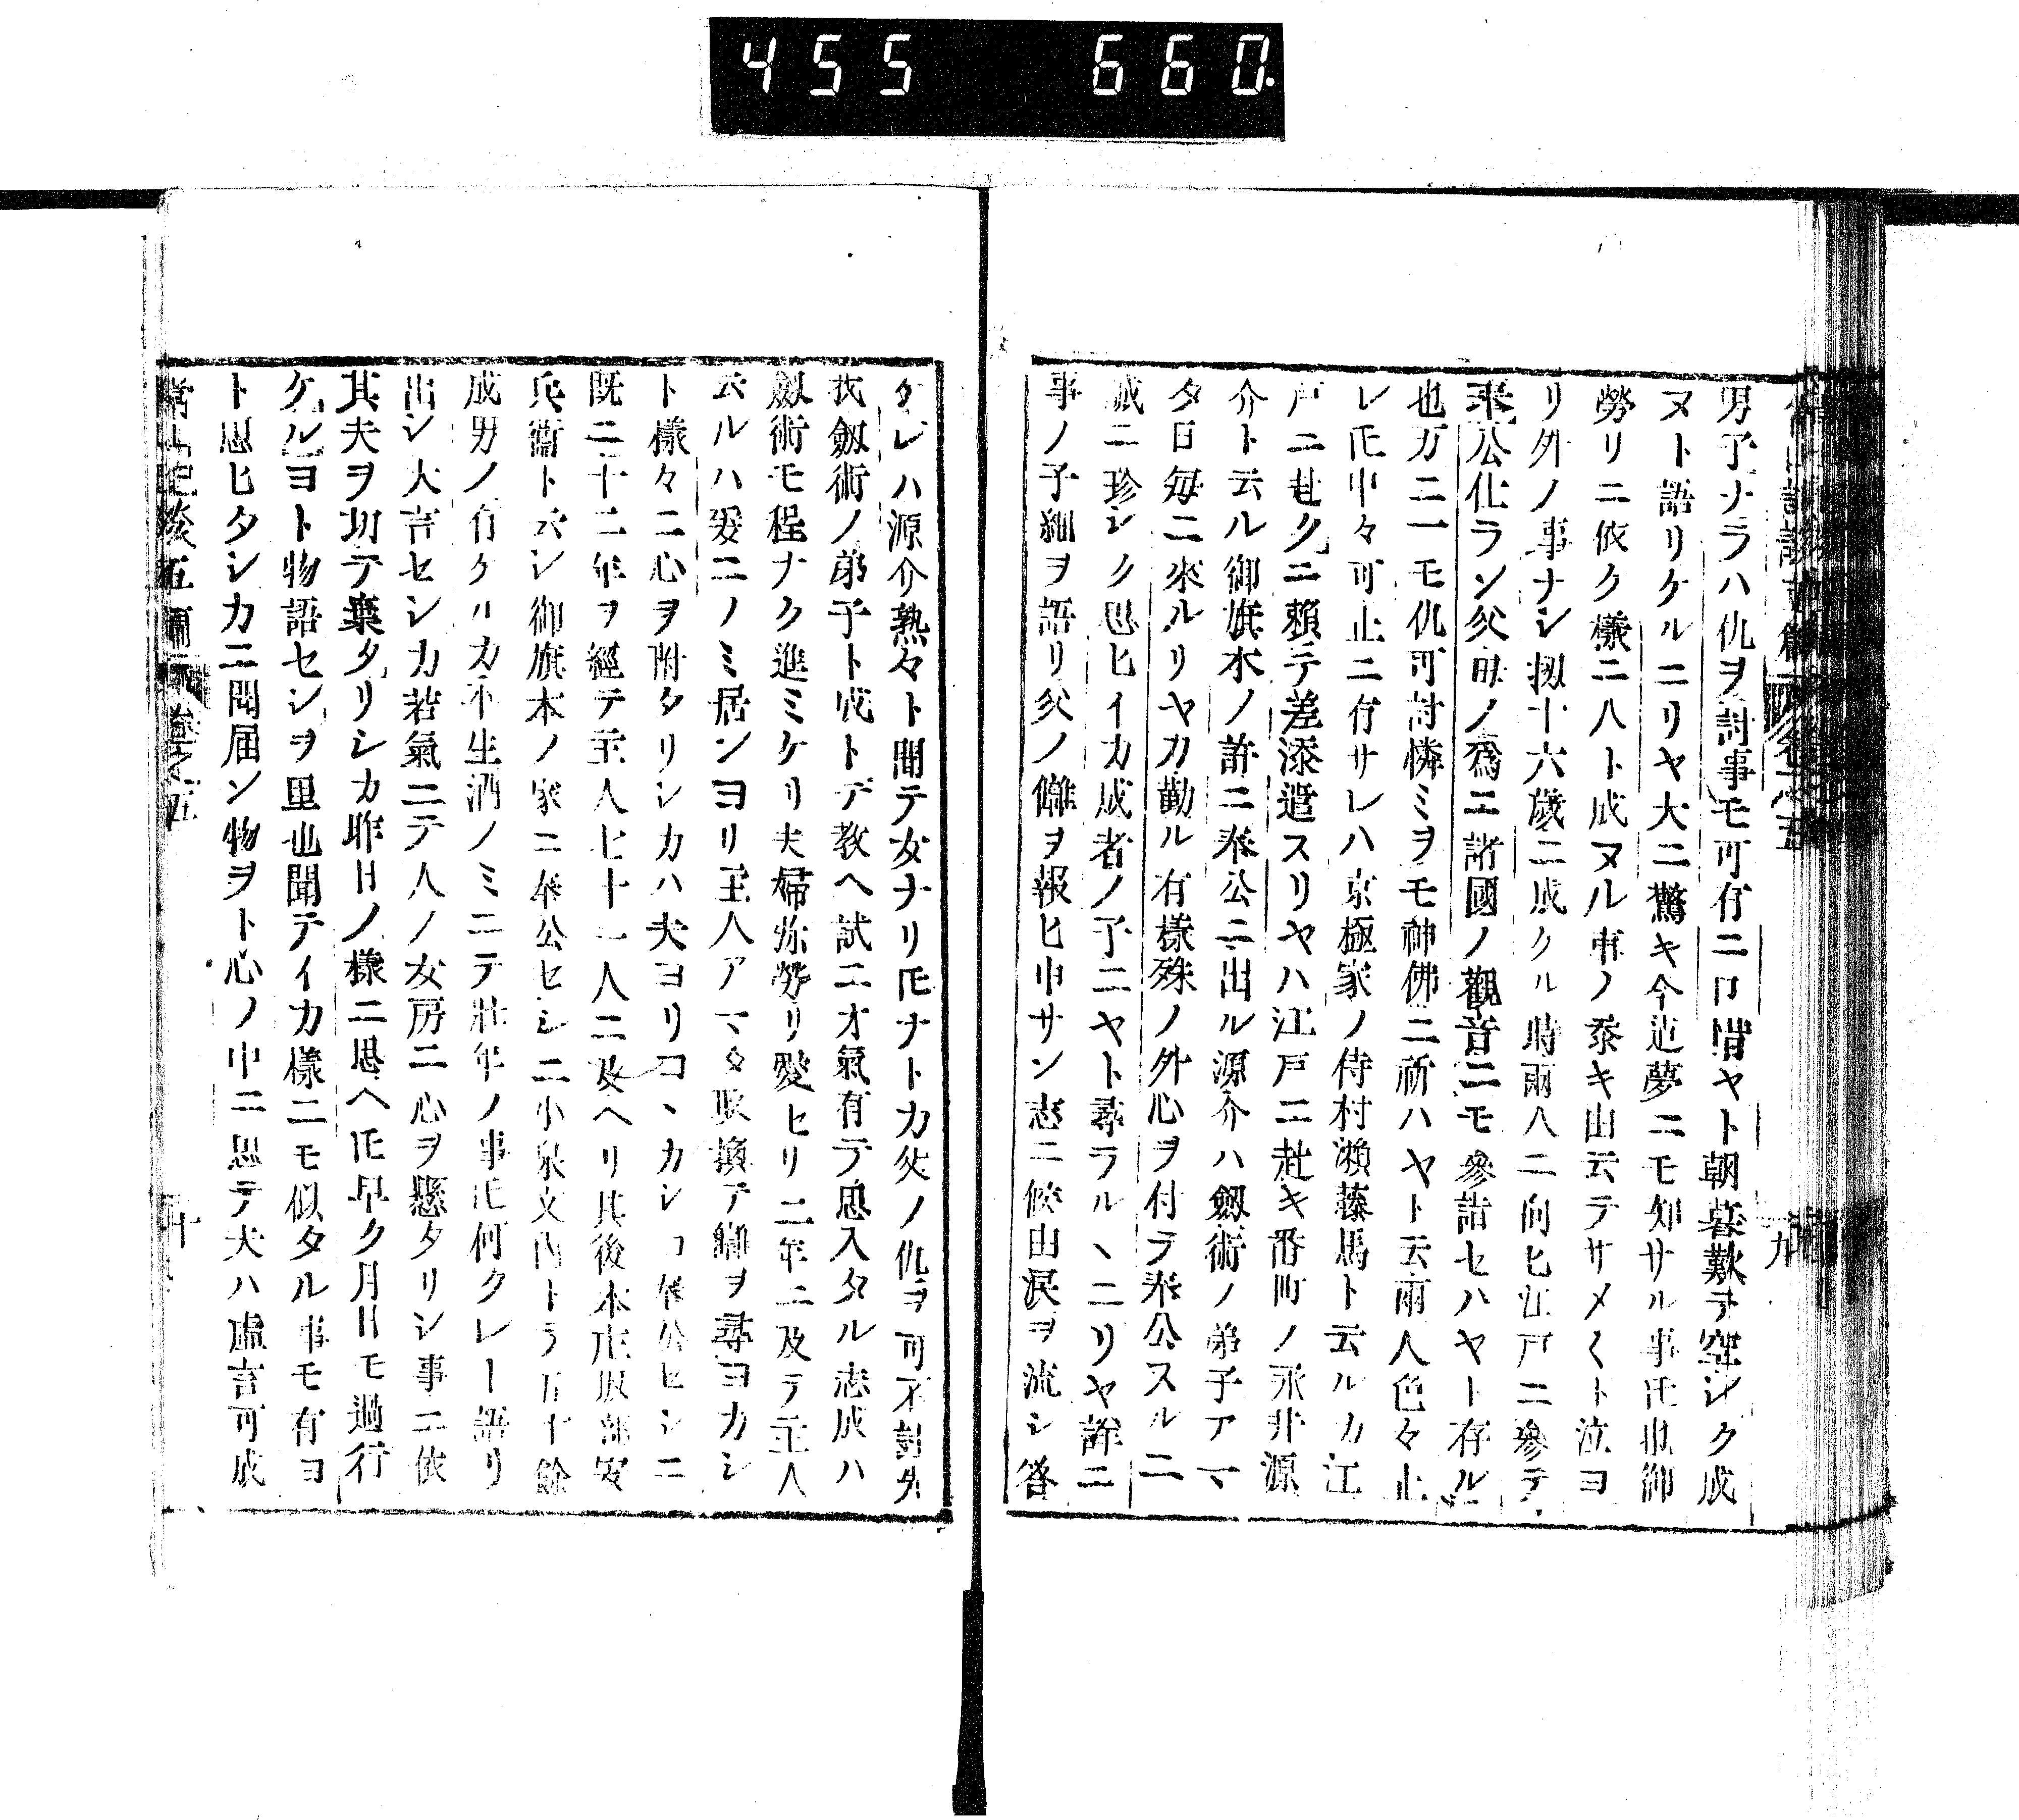 455 660.
男子ナラハ仇ヲ討事モ可有ニ口惜ヤト朝暮歎テ空シク成
ヌト語リケルニリヤ大ニ驚キ今迠夢ニモ知サル事𪜈也御
勞リニ依ク樣ニ人ト成ヌル事ノ泰キ由云テサメ〱ト泣ヨ
リ外ノ事ナシ扨十六歲ニ成クル時兩人ニ向ヒ江戸ニ參テ
奉公仕ラン父母ノ爲ニ諸國ノ觀音ニモ參詣セハヤト存ル
也万ニ一モ仇可討憐ミヲモ神佛ニ祈ハヤト云兩人色々止
レ𪜈中々可止ニ有サレハ京極家ノ侍村瀨藤馬ト云ルカ江
戸ニ赴クニ賴テ差添遣スリヤハ江戸ニ赴キ番町ノ永井源
介ト云ル御旗本ノ許ニ奉公ニ出ル源介ハ劔術ノ弟子アマ
タ日每ニ來ルリヤカ勤ル有樣殊ノ外心ヲ付テ奉公スルニ
誠ニ珍シク思ヒイカ成者ノ子ニヤト尋ラルヽニリヤ詳ニ
事ノ子細ヲ語リ父ノ讎ヲ報ヒ申サン志ニ候由淚ヲ流シ答
タレハ源介熟々ト聞テ女ナリ𪜈ナトカ父ノ仇ヲ可不討先
我劔術ノ弟子ト成トテ教ヘ試ニ才氣有テ思入タル志成ハ
劔術モ程ナク進ミケリ夫婦弥勞リ愛セリ二年ニ及テ主人
云ルハ爰ニノミ居ンヨリ主人アマタ取換テ讎ヲ尋ヨカシ
ト樣々ニ心ヲ附タリシカハ夫ヨリコヽカシコ奉公セシニ
既ニ十二年ヲ經テ主人七十一人ニ及ヘリ其後本庄服部安
兵衞ト云シ御旗本ノ家ニ奉公セシニ小泉文内トテ五十餘
成男ノ有ケルカ不生酒ノミニテ壯年ノ事𪜈何クレト語リ
出シ大言セシカ若氣ニテ人ノ女房ニ心ヲ懸タリシ事ニ依
其夫ヲ切テ棄タリシカ昨日ノ樣ニ思ヘ𪜈早ク月日モ過行
ケルヨト物語セシヲ里也聞テイカ樣ニモ似タル事モ有ヨ
ト思ヒタシカニ聞届ン物ヲト心ノ中ニ思テ夫ハ虛言可成
常山紀談五 卷之五 十